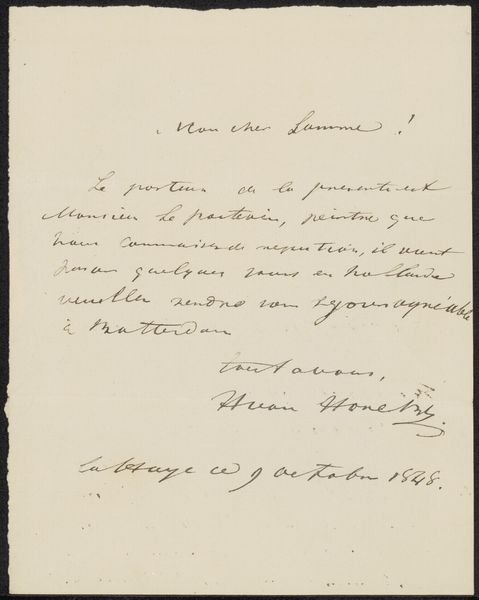 Mon cher Lamme!
Le porteur de la presente est
Monsieur Le poitevin, peintre que
vous connaissez de reputation, il vient
passer quelques jours en hollande
veuillez rendre son sejour agréable
à Rotterdam
tout a vous,
H van Hove
La Haye ce 9 octobre 1848.